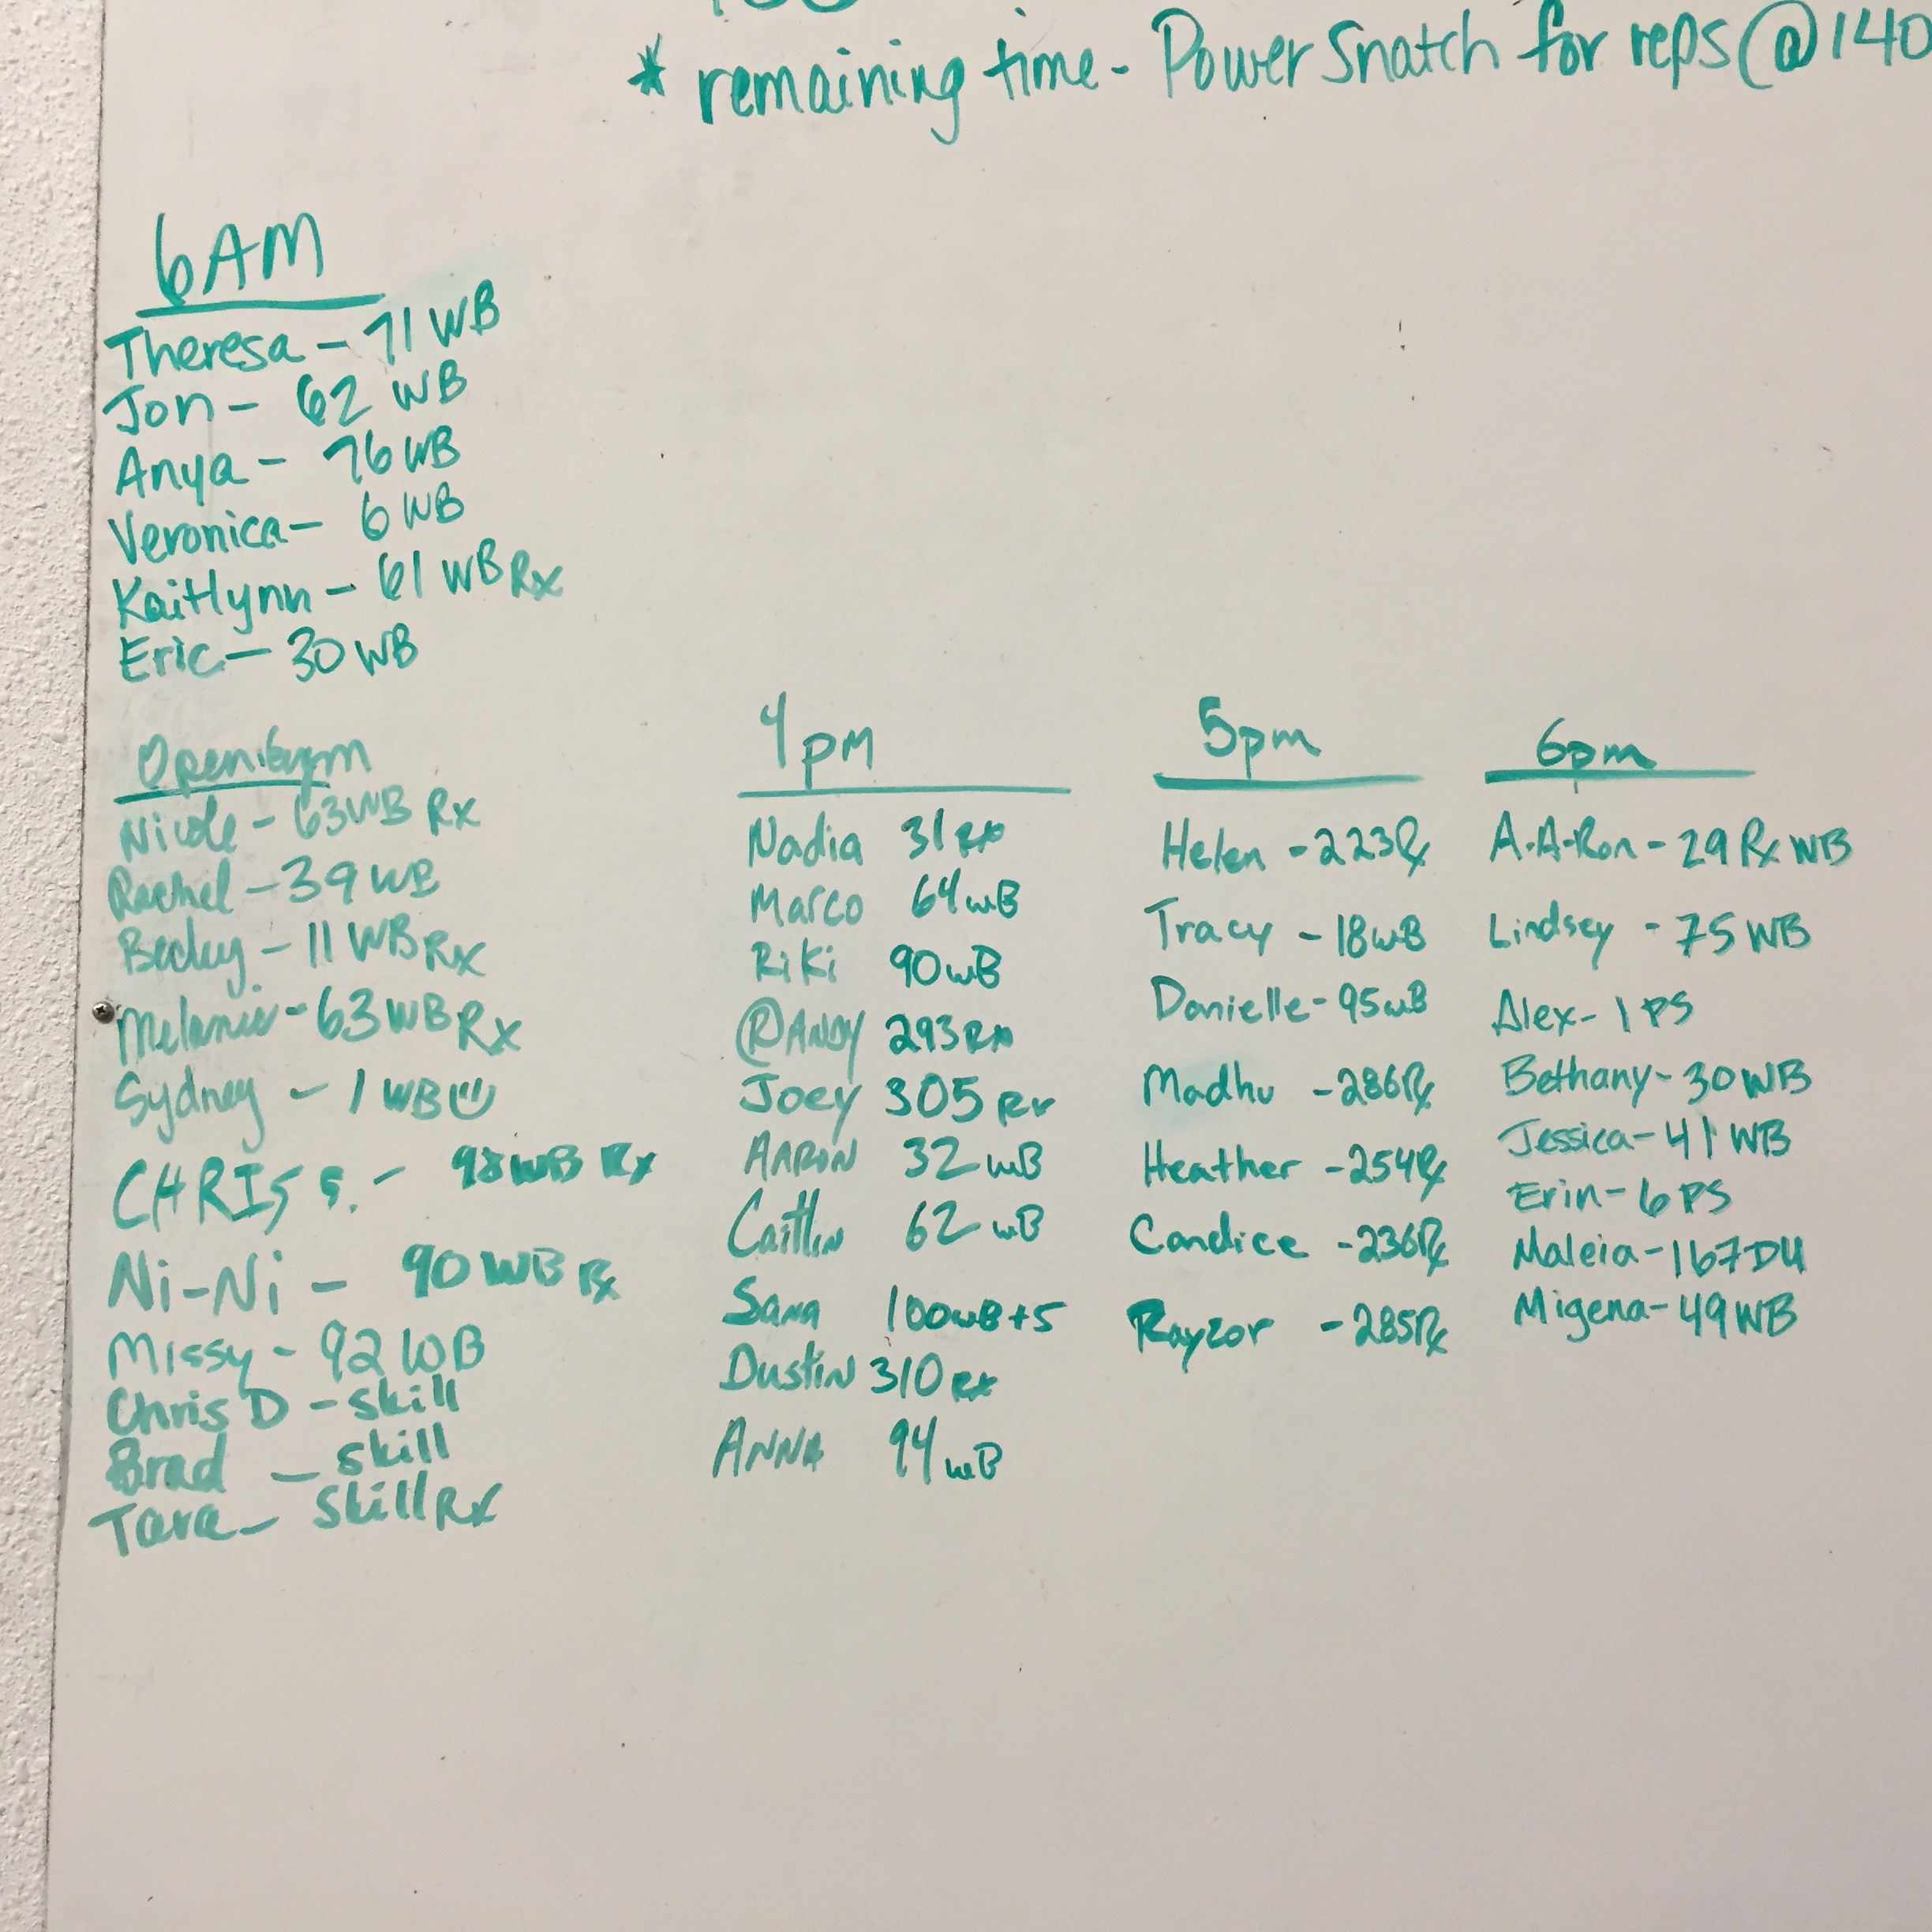 * remaining time - Power Snatch for reps @ 140
6AM
Theresa - 71 WB
Jon - 62 WB
Anya - 76 WB
Veronica - 6 WB
Kaitlynn - 61 WB Rx
Eric - 30 WB
Open Gym
Nicole - 63 WB Rx
Rachel - 39 WB
Becky - 11 WB Rx
Melanie - 63 WB Rx
Sydney - 1 WB
CHRIS S. - WB Rx
Ni-Ni - 90 WB Rx
Missy - 92 WB
Chris D - skill
Brad - skill
Tara - skill Rx
4pm
Nadia 31 Rx
Marco 64 WB
Riki 90 WB
@ANDY 293 Rx
Joey 305 Rx
AARON 32 WB
Caitlin 62 WB
Sana 100 WB + 5
Dustin 310 Rx
ANNA 94 WB
5pm
Helen - 223 Rx
Tracy - 18 WB
Danielle - 95 WB
Madhu - 286 Rx
Heather - 254 Rx
Candice - 236 Rx
Rayzor - 285 Rx
6pm
A-A-Ron - 29 Rx WB
Lindsey - 75 WB
Alex - 1 PS
Bethany - 30 WB
Jessica - 41 WB
Erin - 6 PS
Maleia - 167 DU
Migena - 49 WB